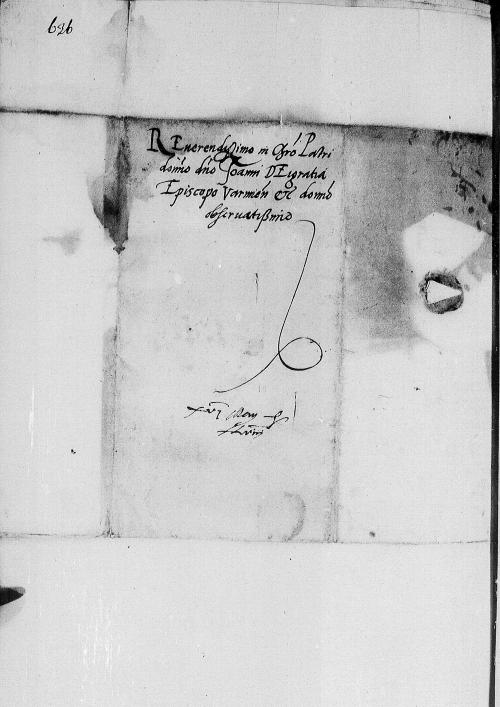 626
REuerendissimo in Chro Patri
domino dno Joanni DEi gratia
Episcopo Varmien &c domino
obseruatissimo